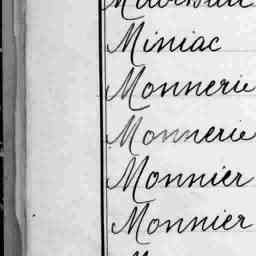 Miniac
Monnerie
Monnerie
Monnier
Monnier